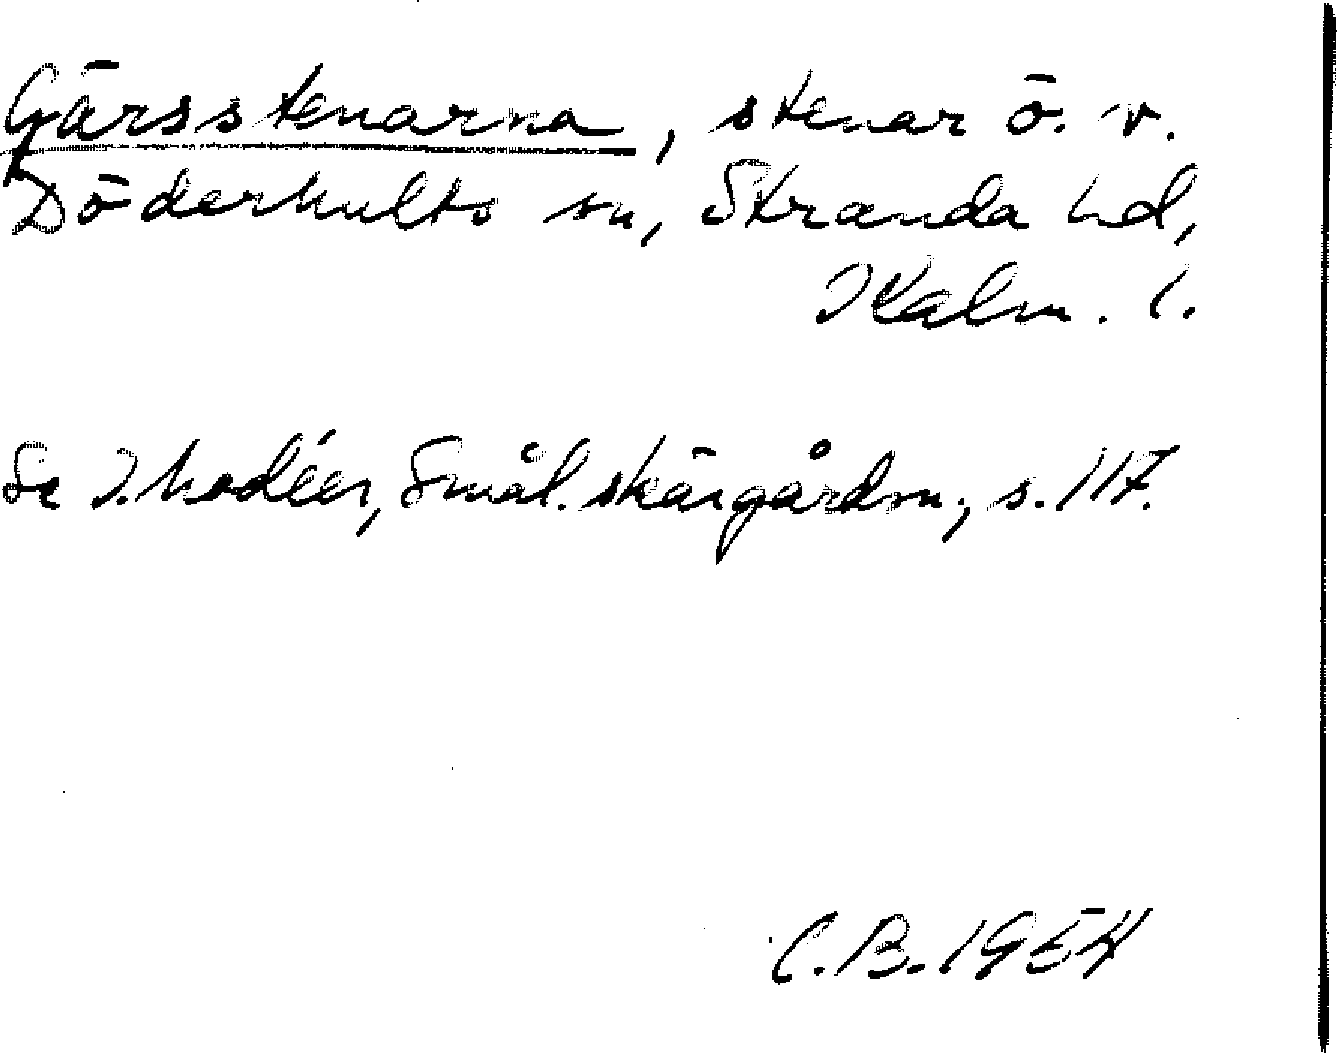 Gärsstenarna, stenar ö. v.
Döderhults sn, Stranda hd,
Kalm. l.
Se I. Modéer, Smål. skärgårdsn., s. 117.
C.B. 1954